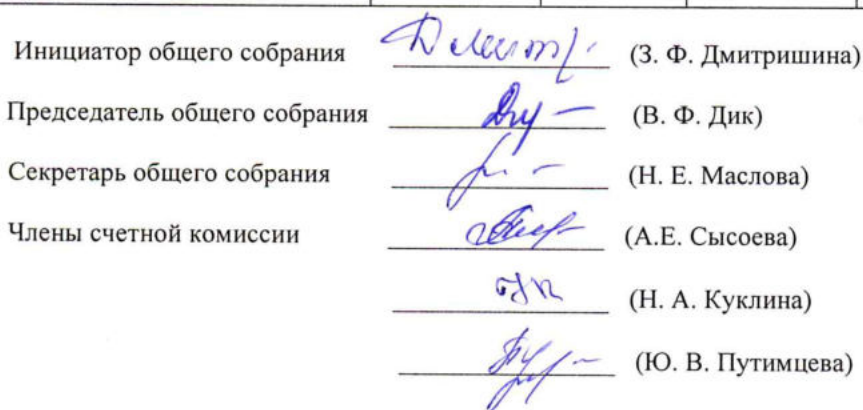 Инициатор общего собрания (З. Ф. Дмитришина)
Председатель общего собрания (В. Ф. Дик)
Секретарь общего собрания (Н. Е. Маслова)
Члены счетной комиссии (А.Е. Сысоева)
(Н. А. Куклина)
(Ю. В. Путимцева)